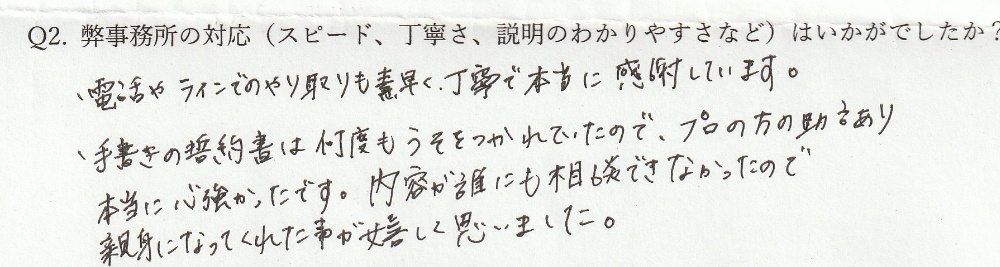 Q2. 弊事務所の対応（スピード、丁寧さ、説明のわかりやすさなど）はいかがでしたか？
、電話や ラインでのやり取りも素早く、丁寧で本当に 感謝しています。
、手書きの誓約書は何度もうそをつかれていたので、プロの方の助言あり
本当に心強かったです。内容が誰にも相談できなかったので
親身になってくれた事が嬉しく思いました。